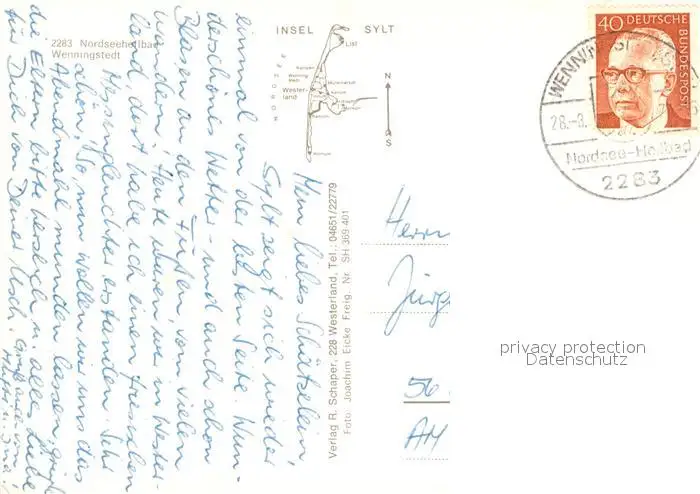 2283 Nordseeheilbad
Wenningstedt
INSEL SYLT
List
Kampen
Wenning-
stedt
Wester-
land
NORDSEE
Hörnum
N
S
Mein liebes Schätzelein,
Sylt zeigt sich wieder
einmal von der besten Seite. Wun-
derschönes Wetter - und auch schon
Blasen an den Füßen vom vielen
wandern. Heute waren wir in Wester-
land, dort habe ich einen friesischen
erstanden. Sehr
schön! So, nun wollen wir uns das
Abendmahl munden lassen, grüß
die Eltern bitte herzlich u. alles Liebe
für Dich von Deiner Usch.
Verlag R. Schaper, 228 Westerland, Tel.: 04651/22779
Foto: Joachim Eicke Freig. Nr. SH 369-401
40 DEUTSCHE
BUNDESPOST
28.-3.
Nordsee-Heilbad
2283
Herrn
Jürg
56
privacy protection
Datenschutz